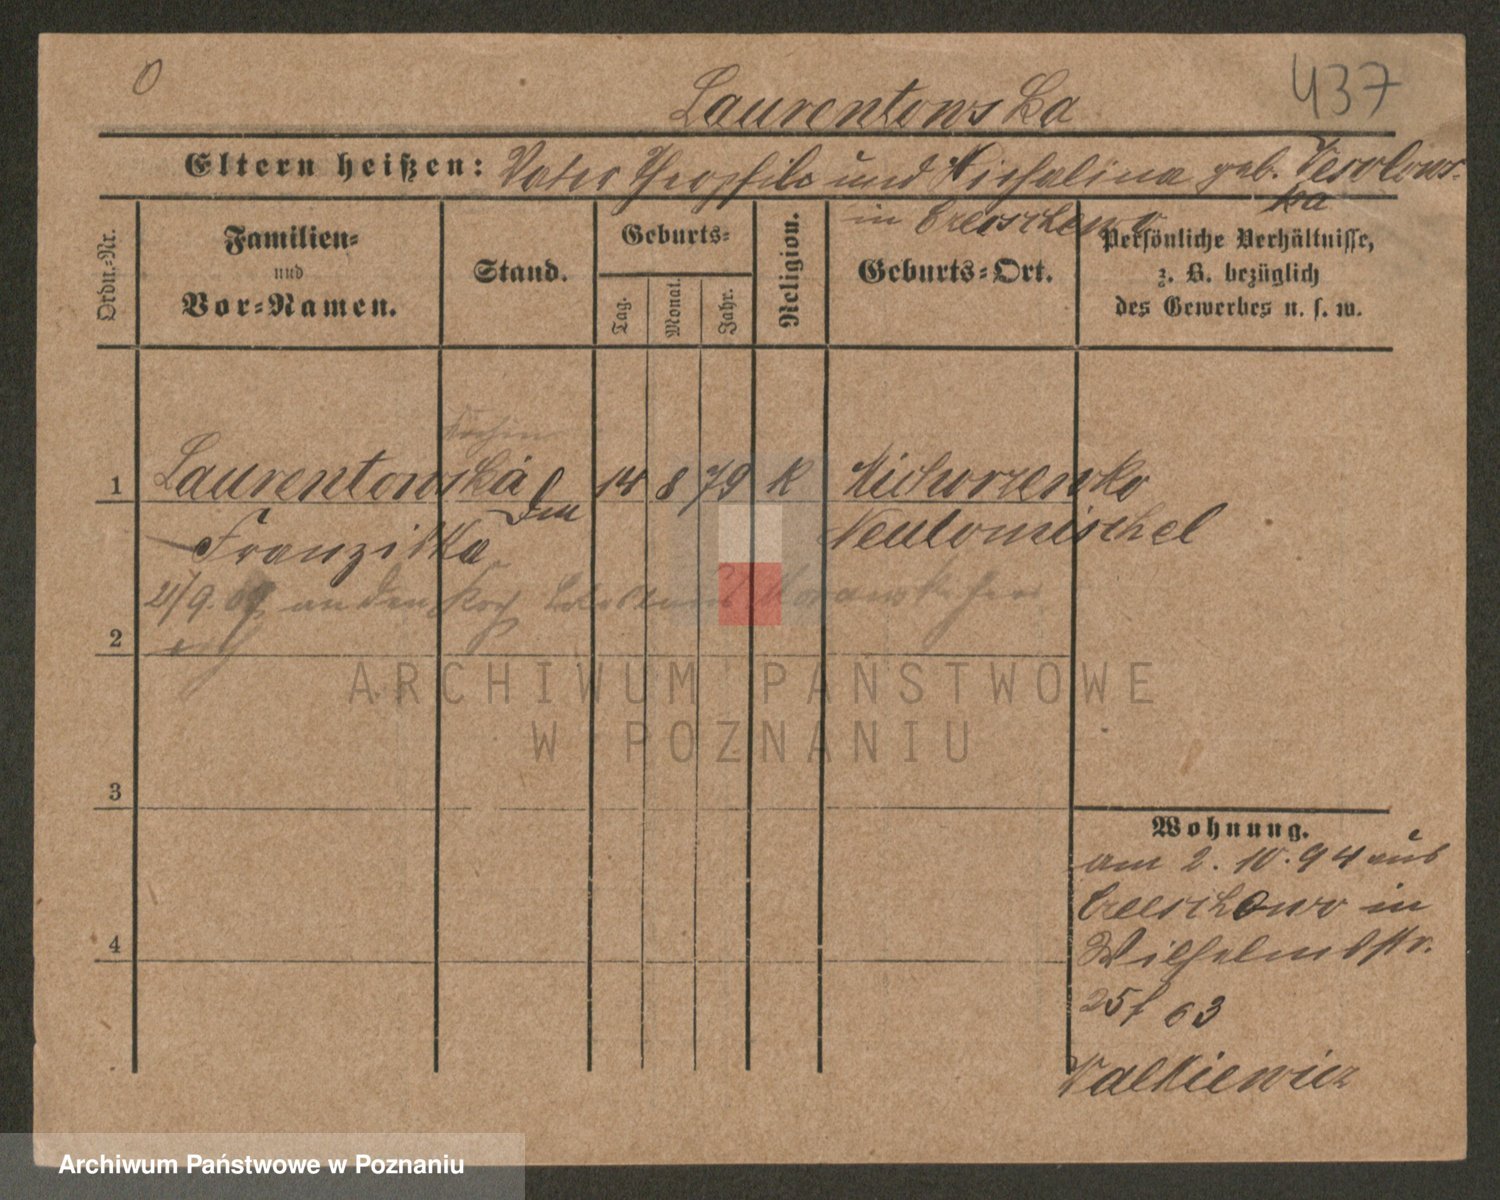 0
437
Laurentowska
Eltern heißen: Vater Theophile und Michalina geb. Vesolows-
ka
in
Ordn.-Nr.
Familien-
und
Vor-Namen.
Stand.
Geburts-
Tag.
Monat.
Jahr.
Religion.
Geburts-Ort.
Persönliche Verhältnisse,
z. B. bezüglich
des Gewerbes u. s. w.
Köchin
1 Laurentowska 14 8 79 K Michorzewko
Franziska Neutomischel
21/9. 09. an den Koch
2
ARCHIWUM PAŃSTWOWE
W POZNANIU
3
Wohnung.
am 2. 10. 94 aus
in
4
Wilhelmstr.
25 f 63
Valkiewicz
Archiwum Państwowe w Poznaniu